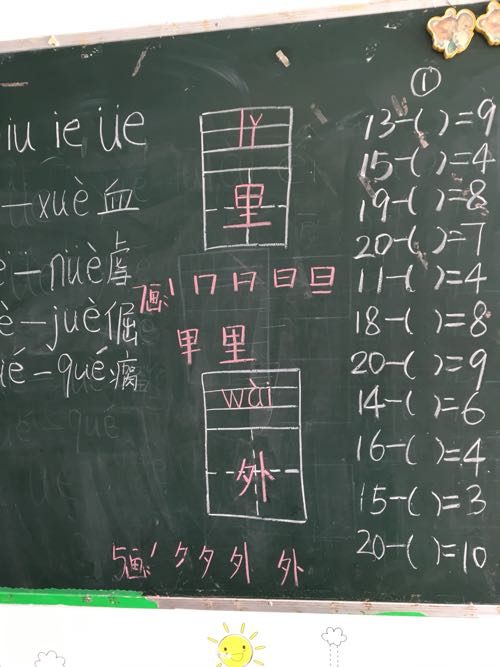 iu ie üe
—xuè 血
e—nüè 虐
è—juè 倔
ué—qué 瘸
lǐ
里
7画: 丨 冂 日 旦
甲 里
wài
外
5画: ク 夕 外
①
13-( )=9
15-( )=4
19-( )=8
20-( )=7
11-( )=4
18-( )=8
20-( )=9
14-( )=6
16-( )=4
15-( )=3
20-( )=10